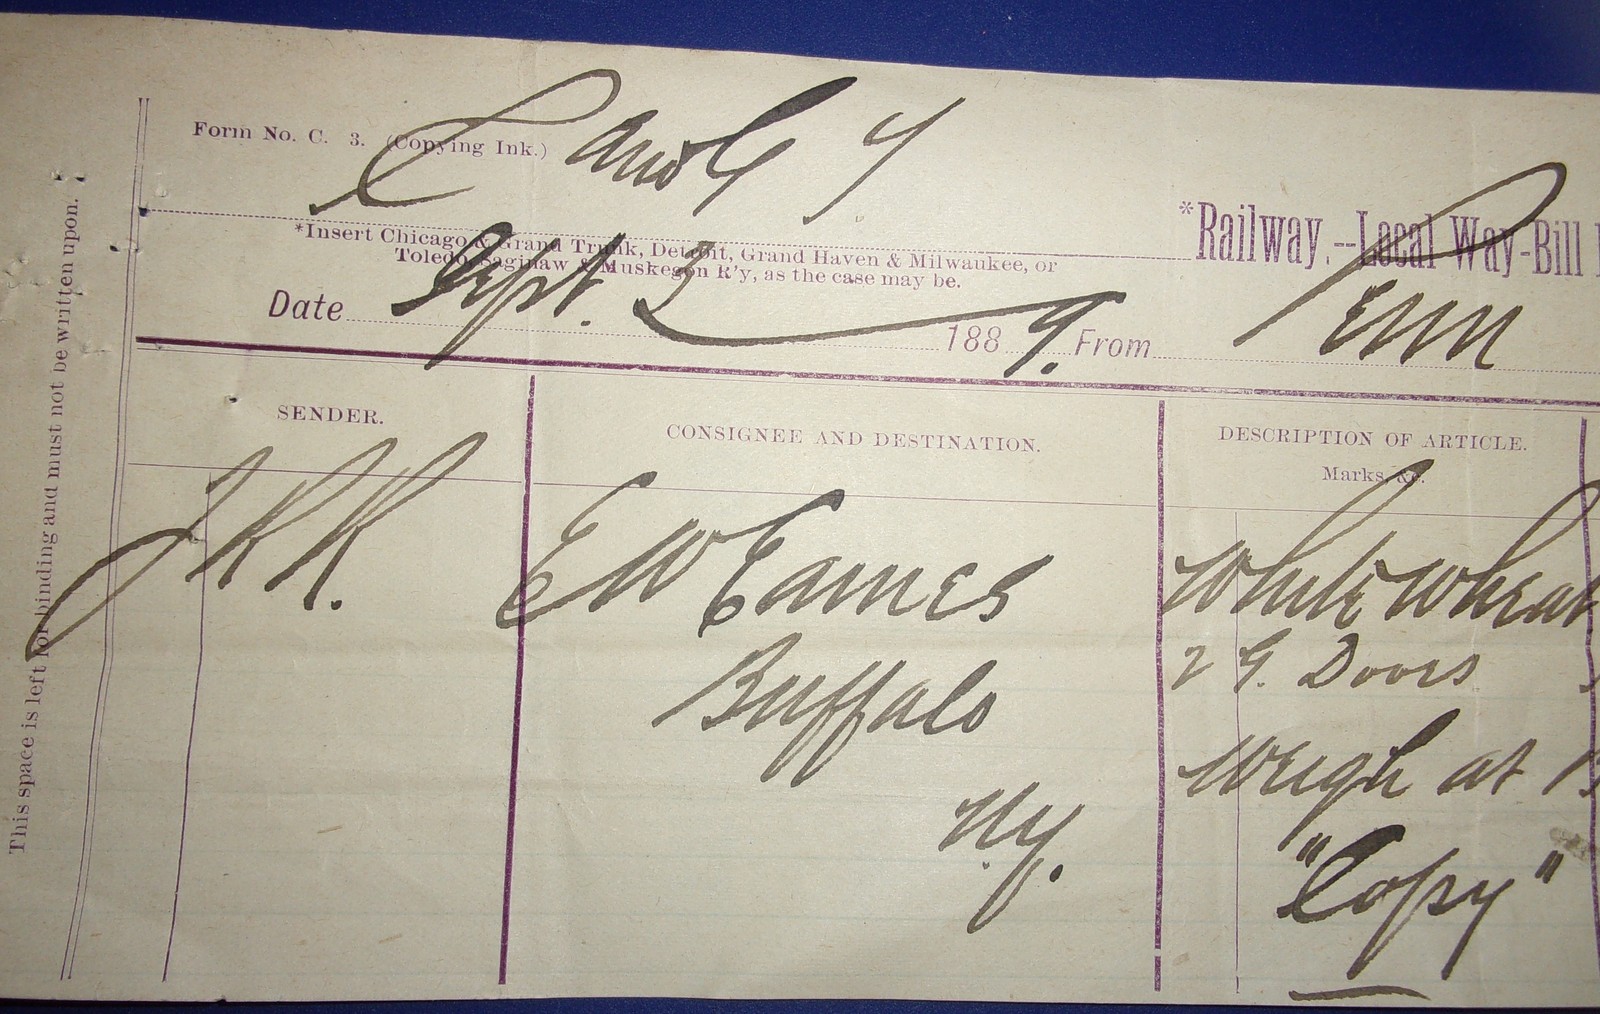 Form No. C. 3. (Copying Ink.)
*Railway.--Local Way-Bill
*Insert Chicago & Grand Trunk, Detroit, Grand Haven & Milwaukee, or
Toledo, Saginaw & Muskegon R'y, as the case may be.
Date Sept. 2 1889. From Penn
SENDER. CONSIGNEE AND DESTINATION. DESCRIPTION OF ARTICLE.
Marks, &c.
E W Eames White Wheat
2 G. Doors
Buffalo
Weigh at
Ny.
"Copy"
This space is left for binding and must not be written upon.